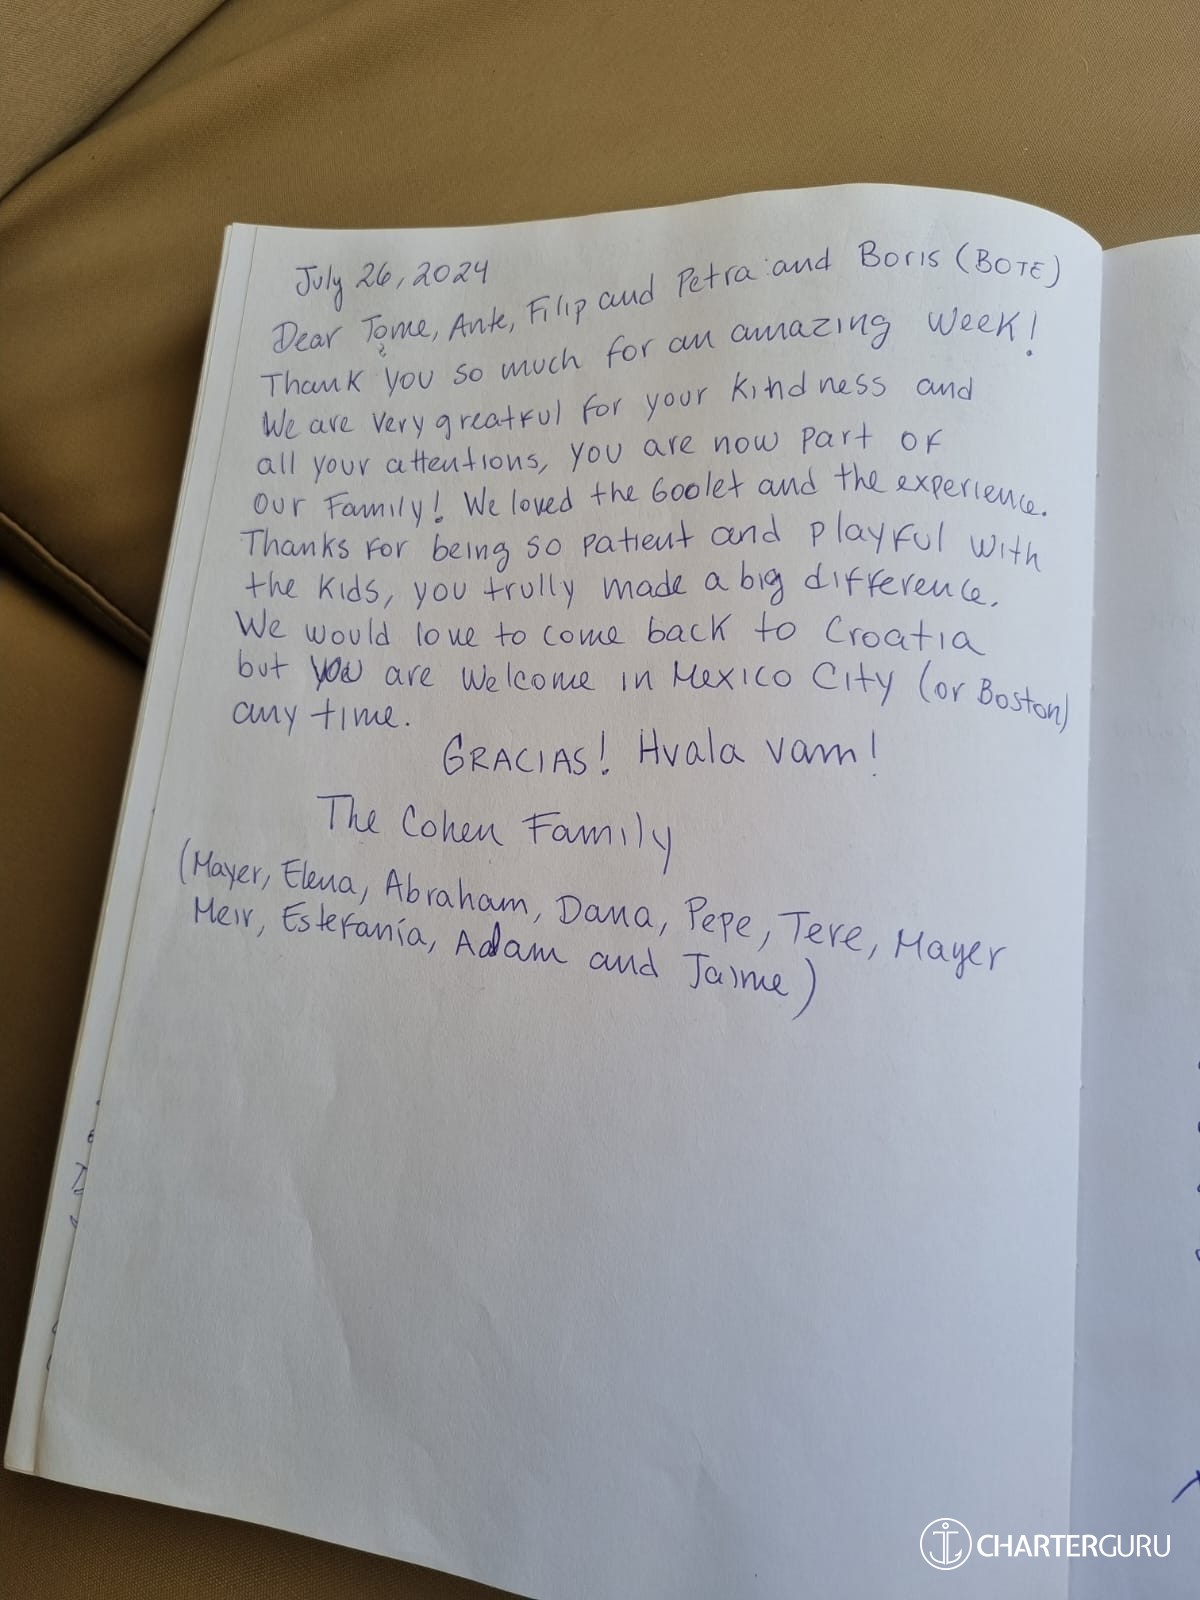 July 26, 2024
Dear Tome, Ante, Filip and Petra and Boris (BOTE)
Thank you so much for an amazing week!
We are very greatful for your kindness and
all your attentions, you are now part of
our Family! We loved the Goolet and the experience.
Thanks for being so patient and playful with
the kids, you trully made a big difference.
We would love to come back to Croatia
but you are welcome in Mexico City (or Boston)
any time.
GRACIAS! Hvala vam!
The Cohen Family
(Mayer, Elena, Abraham, Dana, Pepe, Tere, Mayer
Meir, Estefanía, Adam and Jaime)
CHARTERGURU